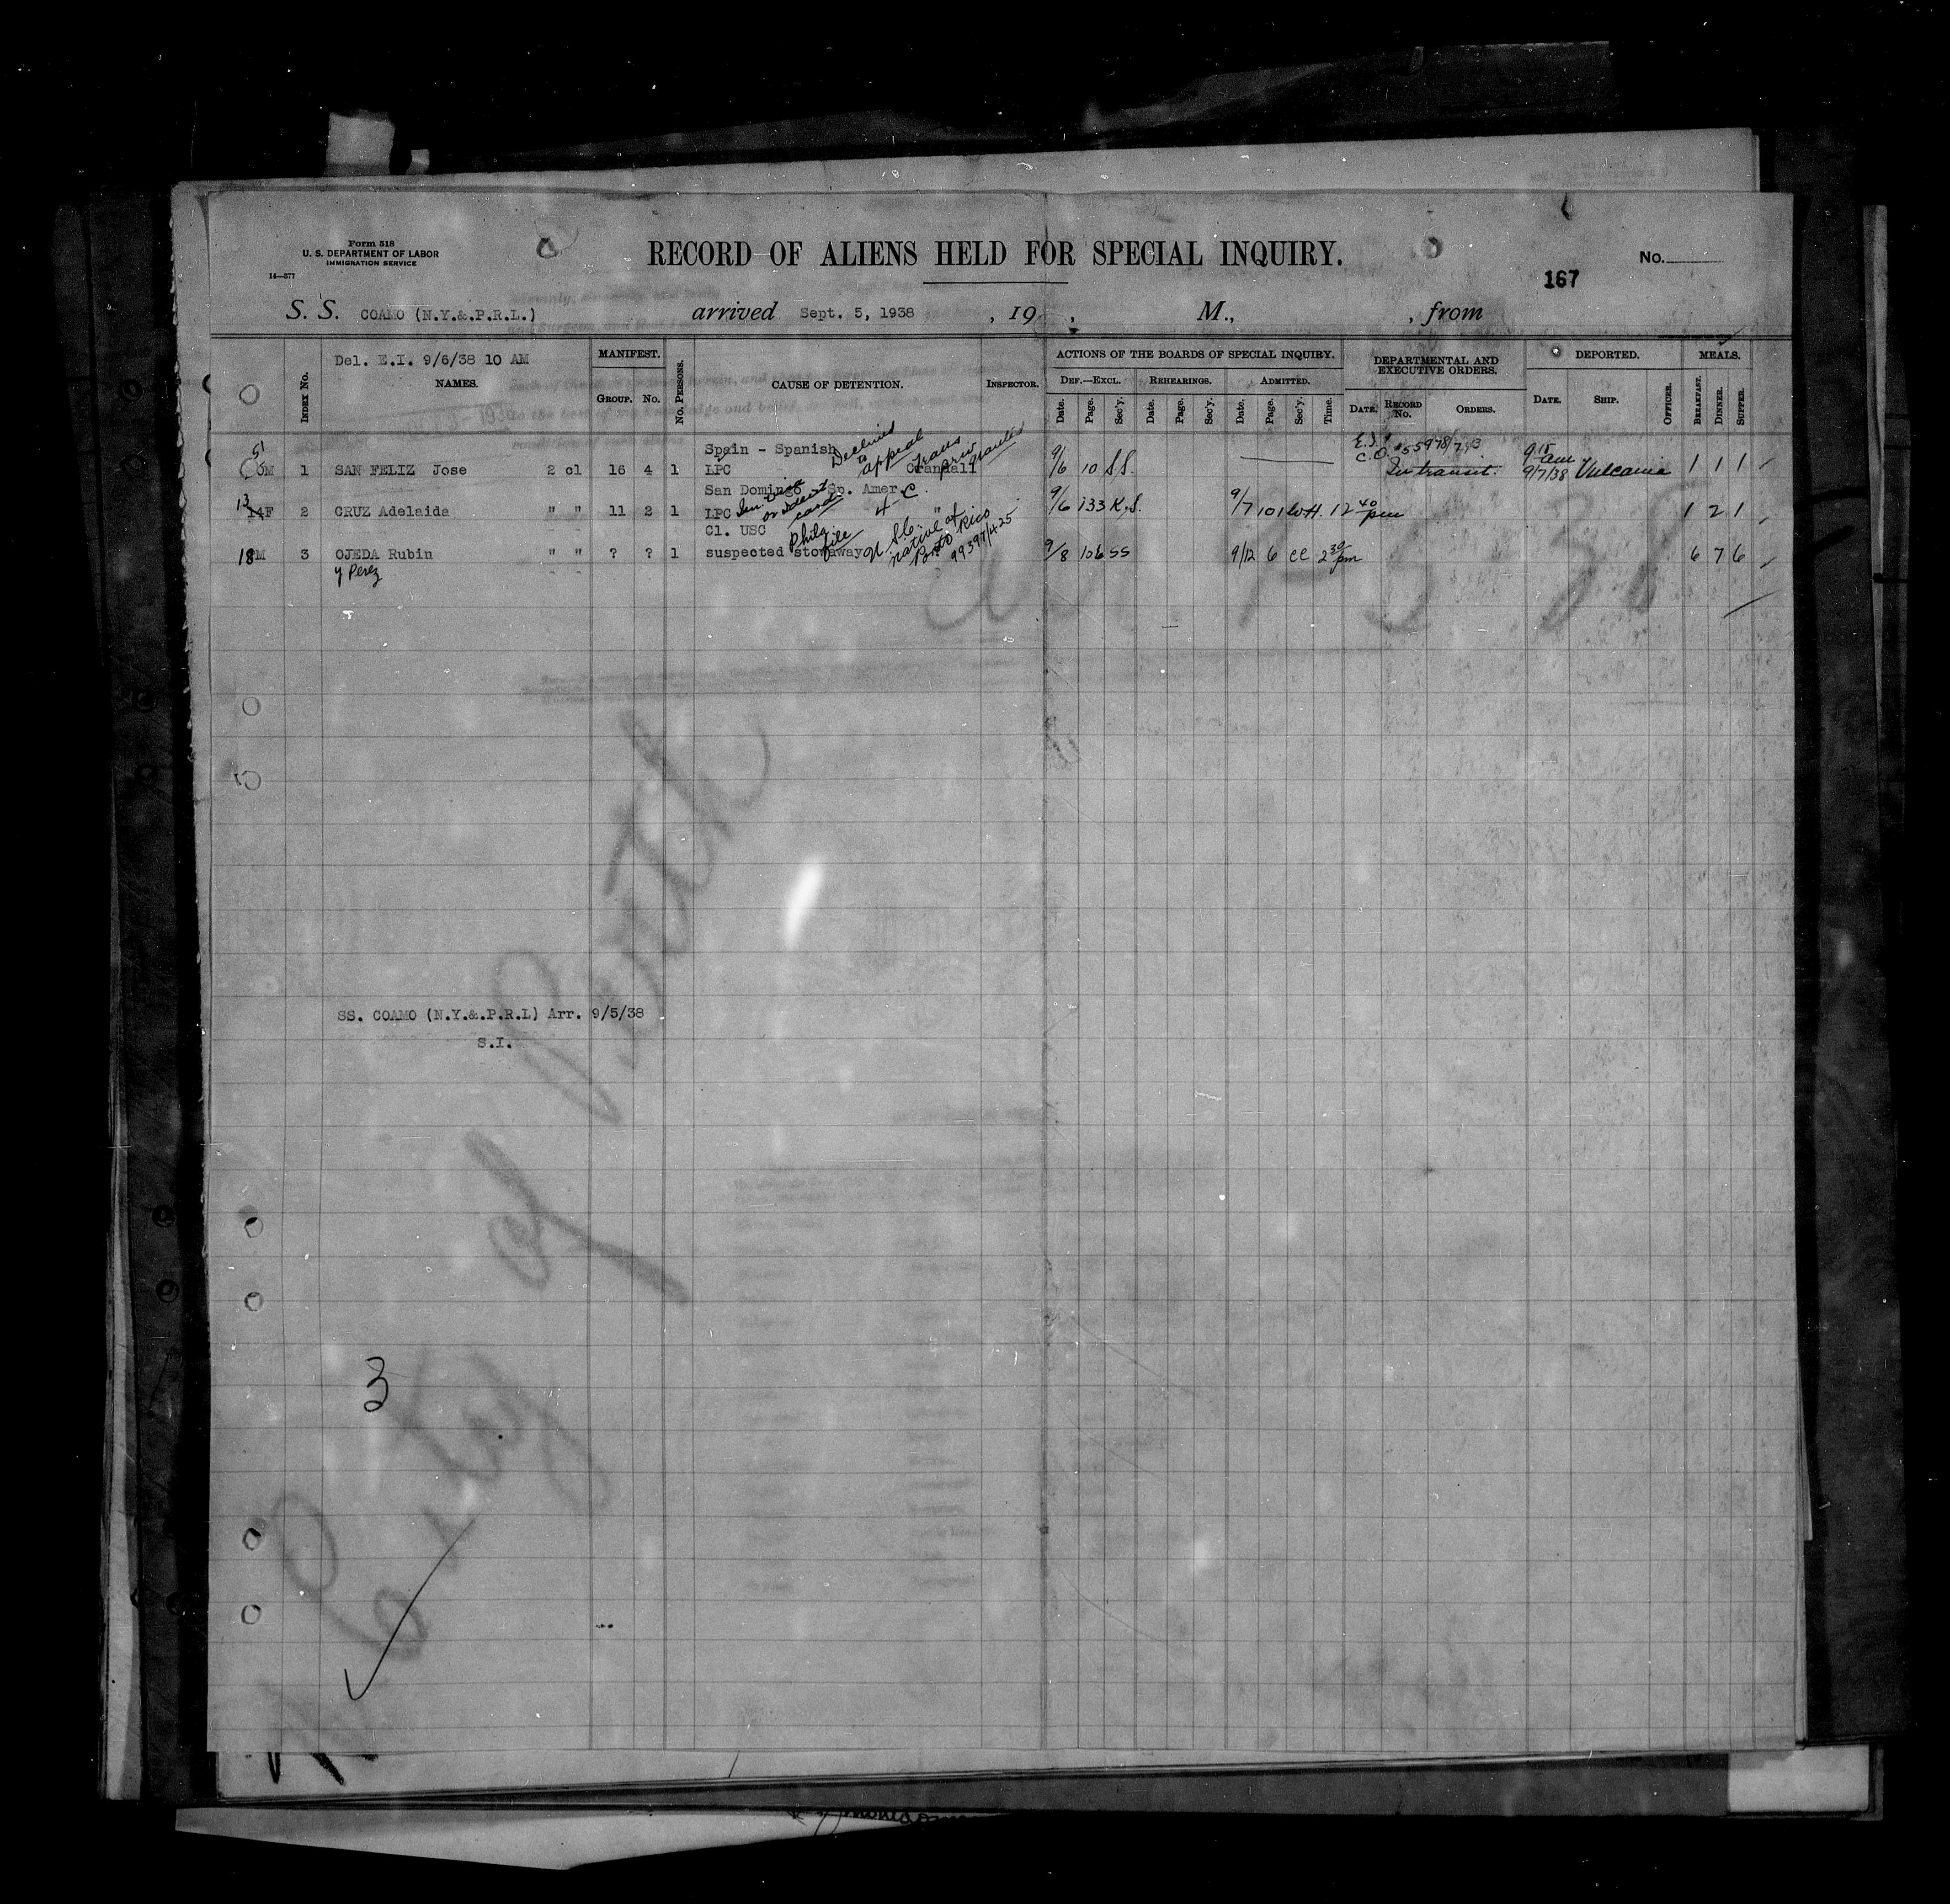 Form 518
U. S. DEPARTMENT OF LABOR
IMMIGRATION SERVICE
14—377
RECORD OF ALIENS HELD FOR SPECIAL INQUIRY.
No.
167
S. S. COAMO (N.Y.&.P.R.L.) arrived Sept. 5, 1938 , 19 , M., , from
Del. E.I. 9/6/38 10 AM
INDEX No. NAMES. MANIFEST. GROUP. No. No. PERSONS. CAUSE OF DETENTION. INSPECTOR.
ACTIONS OF THE BOARDS OF SPECIAL INQUIRY. DEPARTMENTAL AND EXECUTIVE ORDERS. DEPORTED. MEALS.
DEF.—EXCL. REHEARINGS. ADMITTED.
Date. Page. Sec'y. Date. Page. Sec'y. Date. Page. Sec'y. Time. DATE. RECORD No. ORDERS. DATE. SHIP. OFFICER. BREAKFAST. DINNER. SUPPER.
Spain - Spanish Declined to appeal Trans priv granted
M 1 SAN FELIZ Jose 2 cl 16 4 1 LPC Crandall 9/6 10 SS. In transit. 9 15 am 9/7/38 Vulcania 1 1 1
San Domingo - Sp. Amer.
13 14F 2 CRUZ Adelaida " " 11 2 1 LPC " 9/6 133 K.S. 9/7 101 W.H. 12 40 pm 1 2 1
Cl. USC Phila file U.S.C. native of Porto Rico 99397/425
18M 3 OJEDA Rubin " " ? ? 1 suspected stowaway 9/8 106 SS 9/12 6 CC 2 30 pm 6 7 6
y Perez
SS. COAMO (N.Y.&.P.R.L) Arr. 9/5/38
S.I.
3